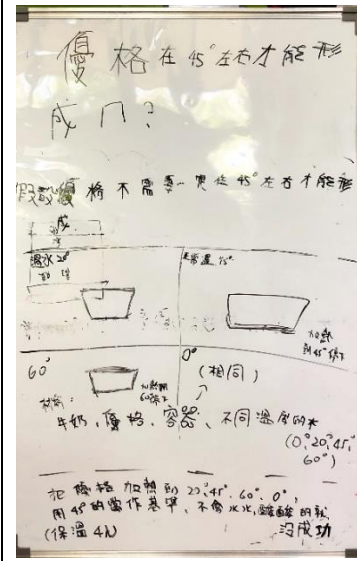 優格在45°左右才能形
成ㄇ?
假設優格不需要一定在45°左右才能形
成
溫水20°
常溫
加熱
到45°
60°
加熱到
60°
0°
(相同)
材料:
牛奶,優格、容器、不同溫度的水
(0°,20°,45°,
60°)
把優格加熱到20°,45°,60°,0°,
用45°的當作基準,不像水水,酸酸的就
沒成功
(保溫4h)